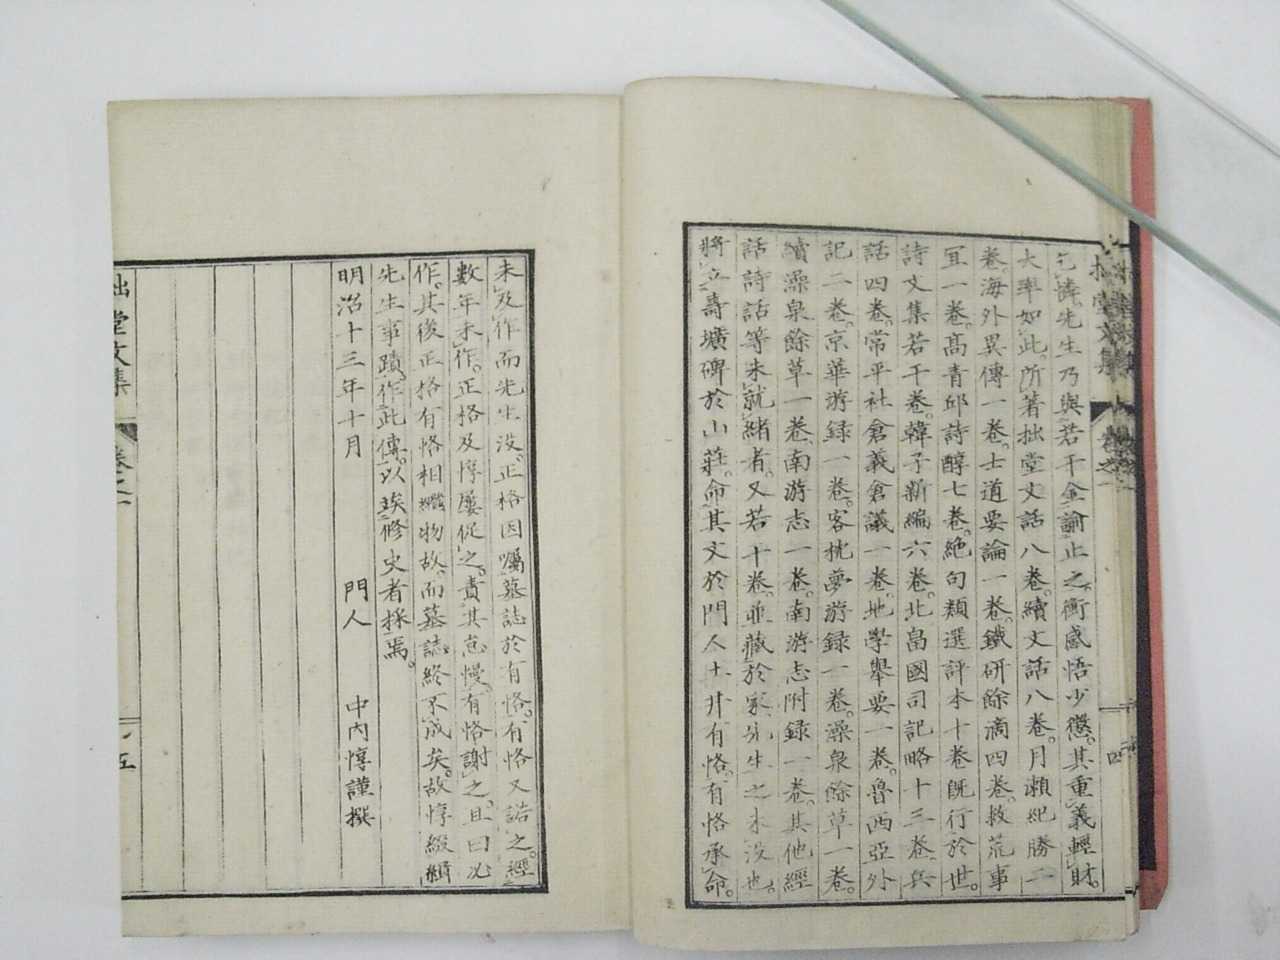 乞憐。先生乃與若干金。諭止之。衡感悟少懲。其重義輕財。
大率如此。所著拙堂文話八卷。續文話八卷。月瀨紀勝二
卷。海外異傳一卷。士道要論一卷。鐵研餘滴四卷。救荒事
宜一卷。高青邱詩醇七卷。絶句類選評本十卷既行於世。
詩文集若干卷。韓子新編六卷。北畠國司記略十三卷。兵
話四卷。常平社倉義倉議一卷。地學舉要一卷。魯西亞外
記二卷。京華游録一卷。客枕夢游録一卷。澡泉餘草一卷。
續澡泉餘草一卷。南游志一卷。南游志附録一卷。其他經
話詩話等未就緒者。又若干卷。並藏於家。先生之未没也。
將立壽壙碑於山莊。命其文於門人土井有恪。有恪承命。
拙堂文集 卷之一
四
未及作而先生没。正格因囑墓誌於有恪。有恪又諾之。經
數年未作。正格及惇屢促之。責其怠慢。有恪謝之。且曰必
作。其後正格有恪相繼物故。而墓誌終不成矣。故惇綴緝
先生事蹟。作此傳。以竢修史者採焉。
明治十三年十月 門人 中内惇謹撰
拙堂文集 卷之一
五